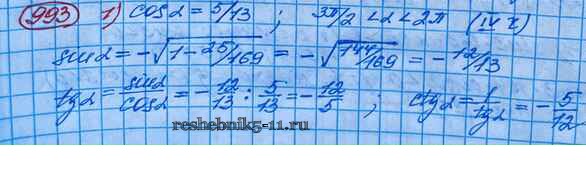 993 1) cos α = 5/13 ; 3π/2 < α < 2π (IV ч)
sin α = -√(1 - 25/169) = -√(144/169) = -12/13
tg α = sin α/cos α = -12/13 : 5/13 = -12/5 ; ctg α = 1/tg α = -5/12
www.reshebnik5-11.ru